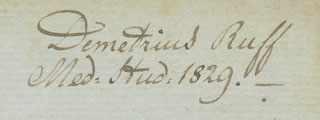 Demetrius Ruff
Med: Stud: 1829. —